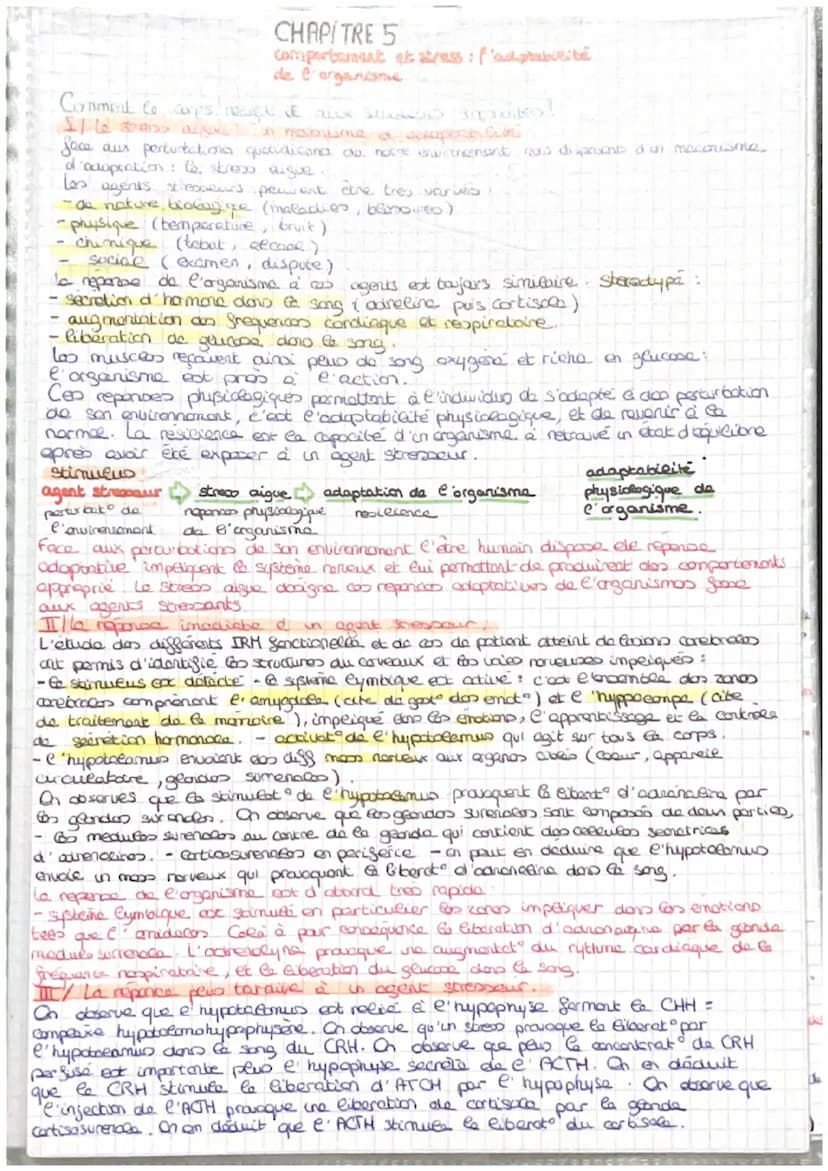 CHAPITRE 5
comportement et stress : l'adaptabilité
de l'organisme
Comment le corps
I / le stress aigue : un mécanisme d'adaptabilité
face aux perturbations quotidiennes de notre environnement nous disposent d'un mécanisme
d'adaptation : le stress aigue.
Les agents stresseurs peuvent être très variés :
- de nature biologique (maladies, blessures)
- physique (température, bruit)
- chimique (tabat, alcool)
- sociale (examen, dispute)
la réponse de l'organisme à ces agents est toujours similaire. stéréotypé :
- sécrétion d'hormone dans le sang (adréline puis cortisole)
- augmentation des fréquences cardiaque et respiratoire.
- libération de glucose dans le sang.
Les muscles reçoivent ainsi plus de sang oxygéné et riche en glucose :
l'organisme est près à l'action.
Ces réponses physiologiques permettent à l'individus de s'adapté à des perturbation
de son environnement, c'est l'adaptabilité physiologique, et de revenir à sa
normale. La résilience est la capacité d'un organisme à retrouvé un état d'équilibre
après avoir été exposer à un agent stresseur.
stimulus
adaptabilité
agent stresseur ⇨ stress aigue ⇨ adaptation de l'organisme
physiologique de
perturbat° de
réponse physiologique
résilience
l'organisme.
l'environnement
de l'organisme
Face aux perturbations de son environnement l'être humain dispose de réponse
adaptative impliquent le système nerveux et lui permettant de produirent des comportements
approprié. Le stress aigue désigne ces réponses adaptatives de l'organismes face
aux agents stressants.
II / La réponse imédiate à un agent stresseur.
L'étude des différents IRM fonctionelle et de cas de patient atteint de lésions cérébrales
ont permis d'identifié les structures du cerveaux et les voies nerveuses impliqués :
- Le stimulus est détecté - Le système lymbique est activé : c'est l'ensemble des zones
cérébrales comprenant l'amygdale (cite de gest° des émot°) et l'hyppocampe (cite
de traitement de la mémoire), impliqué dans les émotions, l'apprentissage et le contrôle
de sécrétion hormonale. - activat° de l'hypotalamus qui agit sur tous le corps.
- l'hypotalamus envoient des diff mess nerveux aux organes cibles (coeur, appareil
circulatoire, glandes surrénales).
On observes que la stimulat° de l'hypotalamus provoquent la libérat° d'adrénaline par
les glandes surénales. On observe que les glandes surénales sont composés de deux parties,
- les medullos surénales au centre de la glande qui contient des cellules sécrétrices
d'adrénalines. - corticosurénales en périférie - on peut en déduire que l'hypotalamus
envoie un mess nerveux qui provoquent la libérat° d'adrénaline dans le sang.
La réponse de l'organisme est d'abord très rapide :
- système lymbique est stimulé en particulier les zones impliquer dans les émotions
tels que l' Celà à pour conséquence la libération d'adrénaline par la glande
medulo surrénale. L'adrénalyne provoque une augmentat° du rythme cardiaque de la
fréquence respiratoire, et la libération du glucose dans le sang.
III / La réponse plus tardive à un agent stresseur.
On observe que l'hypotalamus est relié à l'hypophyse formant le CHH =
complexe hypotalamohypophysère. On observe qu'un stress provoque la libérat° par
l'hypotalamus dans le sang du CRH. On observe que plus la concentrat° de CRH
perfusé est importante plus l'hypophyse secrète de l'ACTH. On en déduit
que le CRH stimule la libération d'ATCH par l'hypophyse. On observe que
l'injection de l'ACTH provoque une libération de cortisole par la glande
cortisosurénale. On en déduit que l'ACTH stimules la libérat° du cortisole.